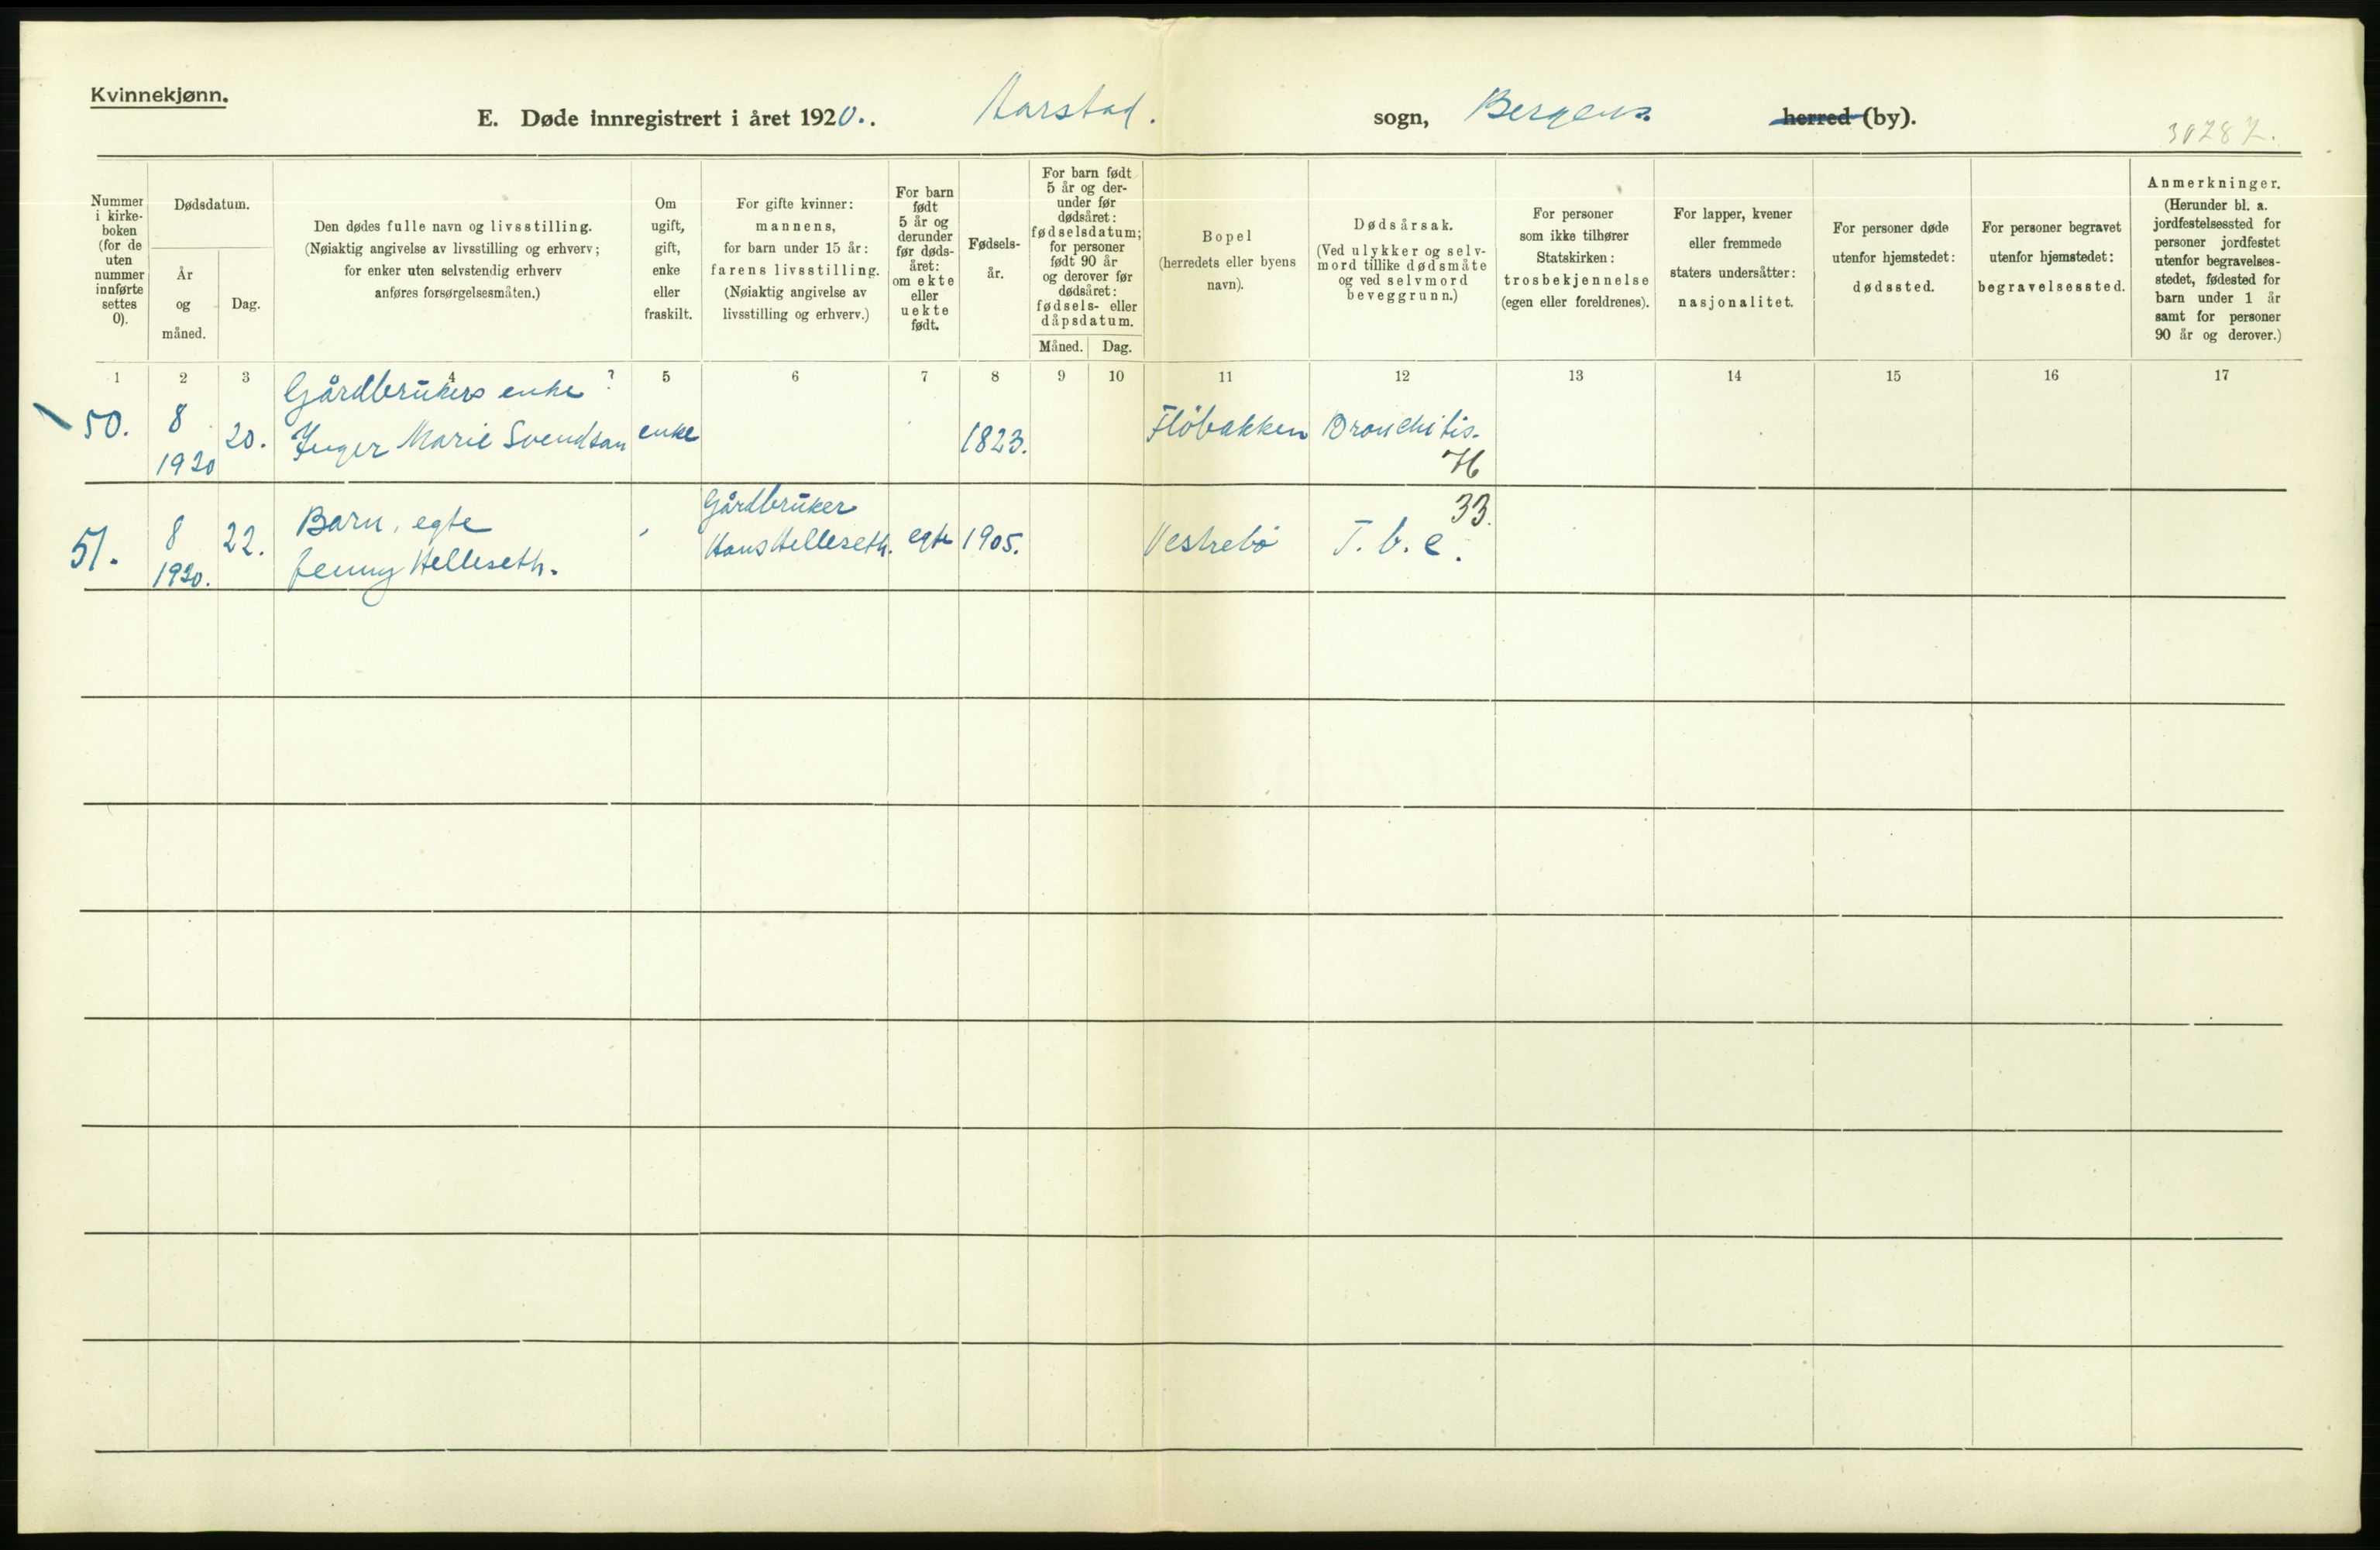 Kvinnekjønn.
E. Døde innregistrert i året 1920. . Aarstad. sogn, Bergens herred (by).
Nummer i kirke- boken (for de uten nummer innførte settes 0).
Dødsdatum.
År og måned.
Dag.
Den dødes fulle navn og livsstilling.
(Nøiaktig angivelse av livsstilling og erhverv;
for enker uten selvstendig erhverv
anføres forsørgelsesmåten.)
Om
ugift,
gift,
enke
eller
fraskilt.
For gifte kvinner:
mannens,
for barn under 15 år:
farens livsstilling.
(Nøiaktig angivelse av
livsstilling og erhverv.)
For barn
født
5 år og
derunder
før døds-
året:
om ekte
eller
uekte
født.
Fødsels-
år.
For barn født
5 år og der-
under før
dødsåret:
fødselsdatum;
for personer
født 90 år
og derover før
dødsåret:
fødsels- eller
dåpsdatum.
Måned. Dag.
Bopel
(herredets eller byens
navn).
Dødsårsak.
(Ved ulykker og selv-
mord tillike dødsmåte
og ved selvmord
beveggrunn.)
For personer
som ikke tilhører
Statskirken:
trosbekjennelse
(egen eller foreldrenes).
For lapper, kvener
eller fremmede
staters undersåtter:
nasjonalitet.
For personer døde
utenfor hjemstedet:
dødssted.
For personer begravet
utenfor hjemstedet:
begravelsessted.
Anmerkninger.
(Herunder bl. a.
jordfestelsessted for
personer jordfestet
utenfor begravelses-
stedet, fødested for
barn under 1 år
samt for personer
90 år og derover.)
1 2 3 4 5 6 7 8 9 10 11 12 13 14 15 16 17
Gårdbrukers enke ?
50. 8 1920 20. Inger Marie Svendsen enke 1823. Flöbakken Bronchitis.
76
51. 8 1920. 22. Barn, egte
Jenny Helleseth.
Gårdbruker
Hans Helleseth. egte 1905. Vestrebö T.b.c.
33.